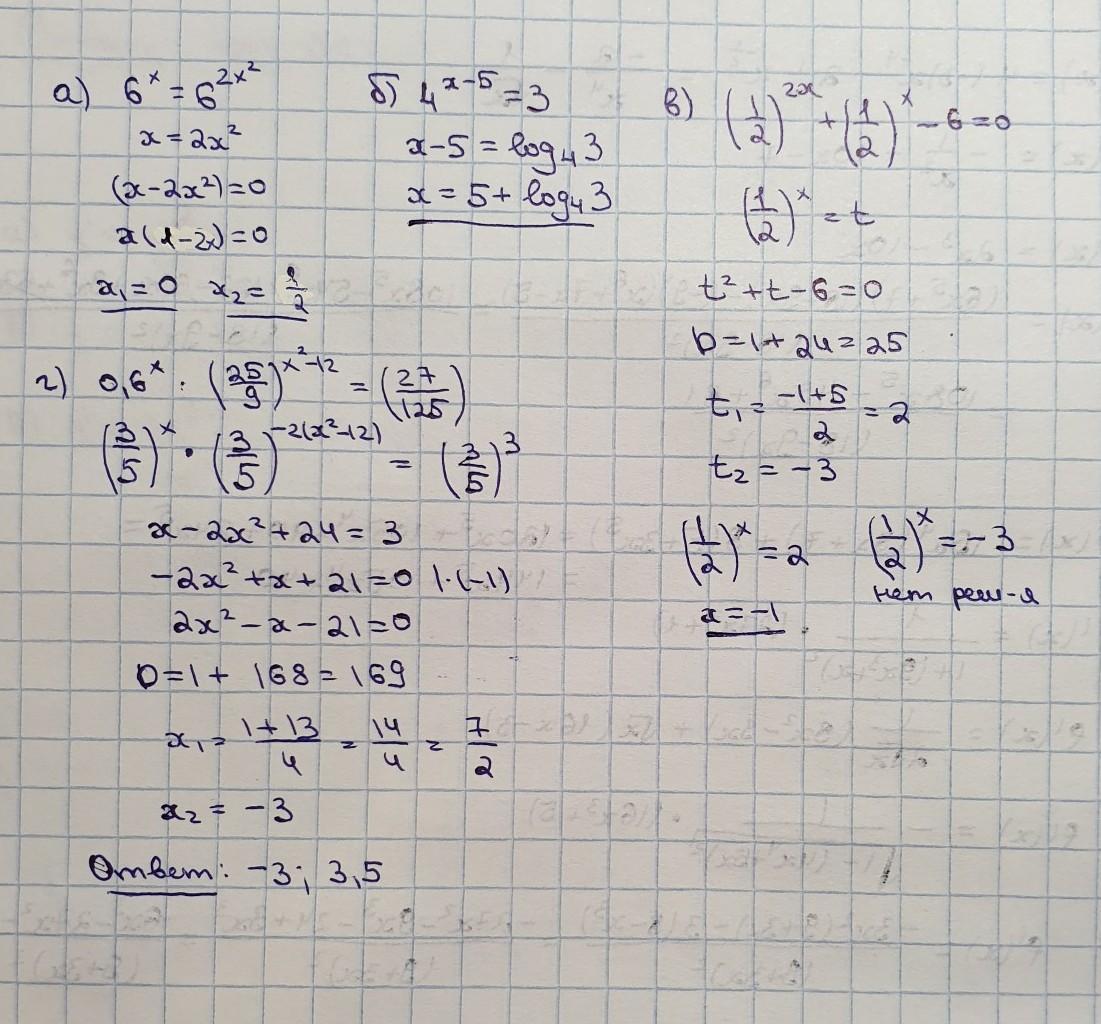 а) 6^x = 6^{2x^2}
x = 2x^2
(x-2x^2) = 0
x(1-2x) = 0
x_1 = 0 x_2 = \frac{1}{2}
б) 4^{x-5} = 3
x-5 = log_4 3
x = 5 + log_4 3
в) (\frac{1}{2})^{2x} + (\frac{1}{2})^x - 6 = 0
(\frac{1}{2})^x = t
t^2 + t - 6 = 0
D = 1 + 24 = 25
t_1 = \frac{-1+5}{2} = 2
t_2 = -3
(\frac{1}{2})^x = 2 (\frac{1}{2})^x = -3
x = -1 нет реш-я
г) 0,6^x · (\frac{25}{9})^{x^2-12} = (\frac{27}{125})
(\frac{3}{5})^x · (\frac{3}{5})^{-2(x^2-12)} = (\frac{3}{5})^3
x - 2x^2 + 24 = 3
-2x^2 + x + 21 = 0 |·(-1)
2x^2 - x - 21 = 0
D = 1 + 168 = 169
x_1 = \frac{1+13}{4} = \frac{14}{4} = \frac{7}{2}
x_2 = -3
Ответ: -3; 3,5